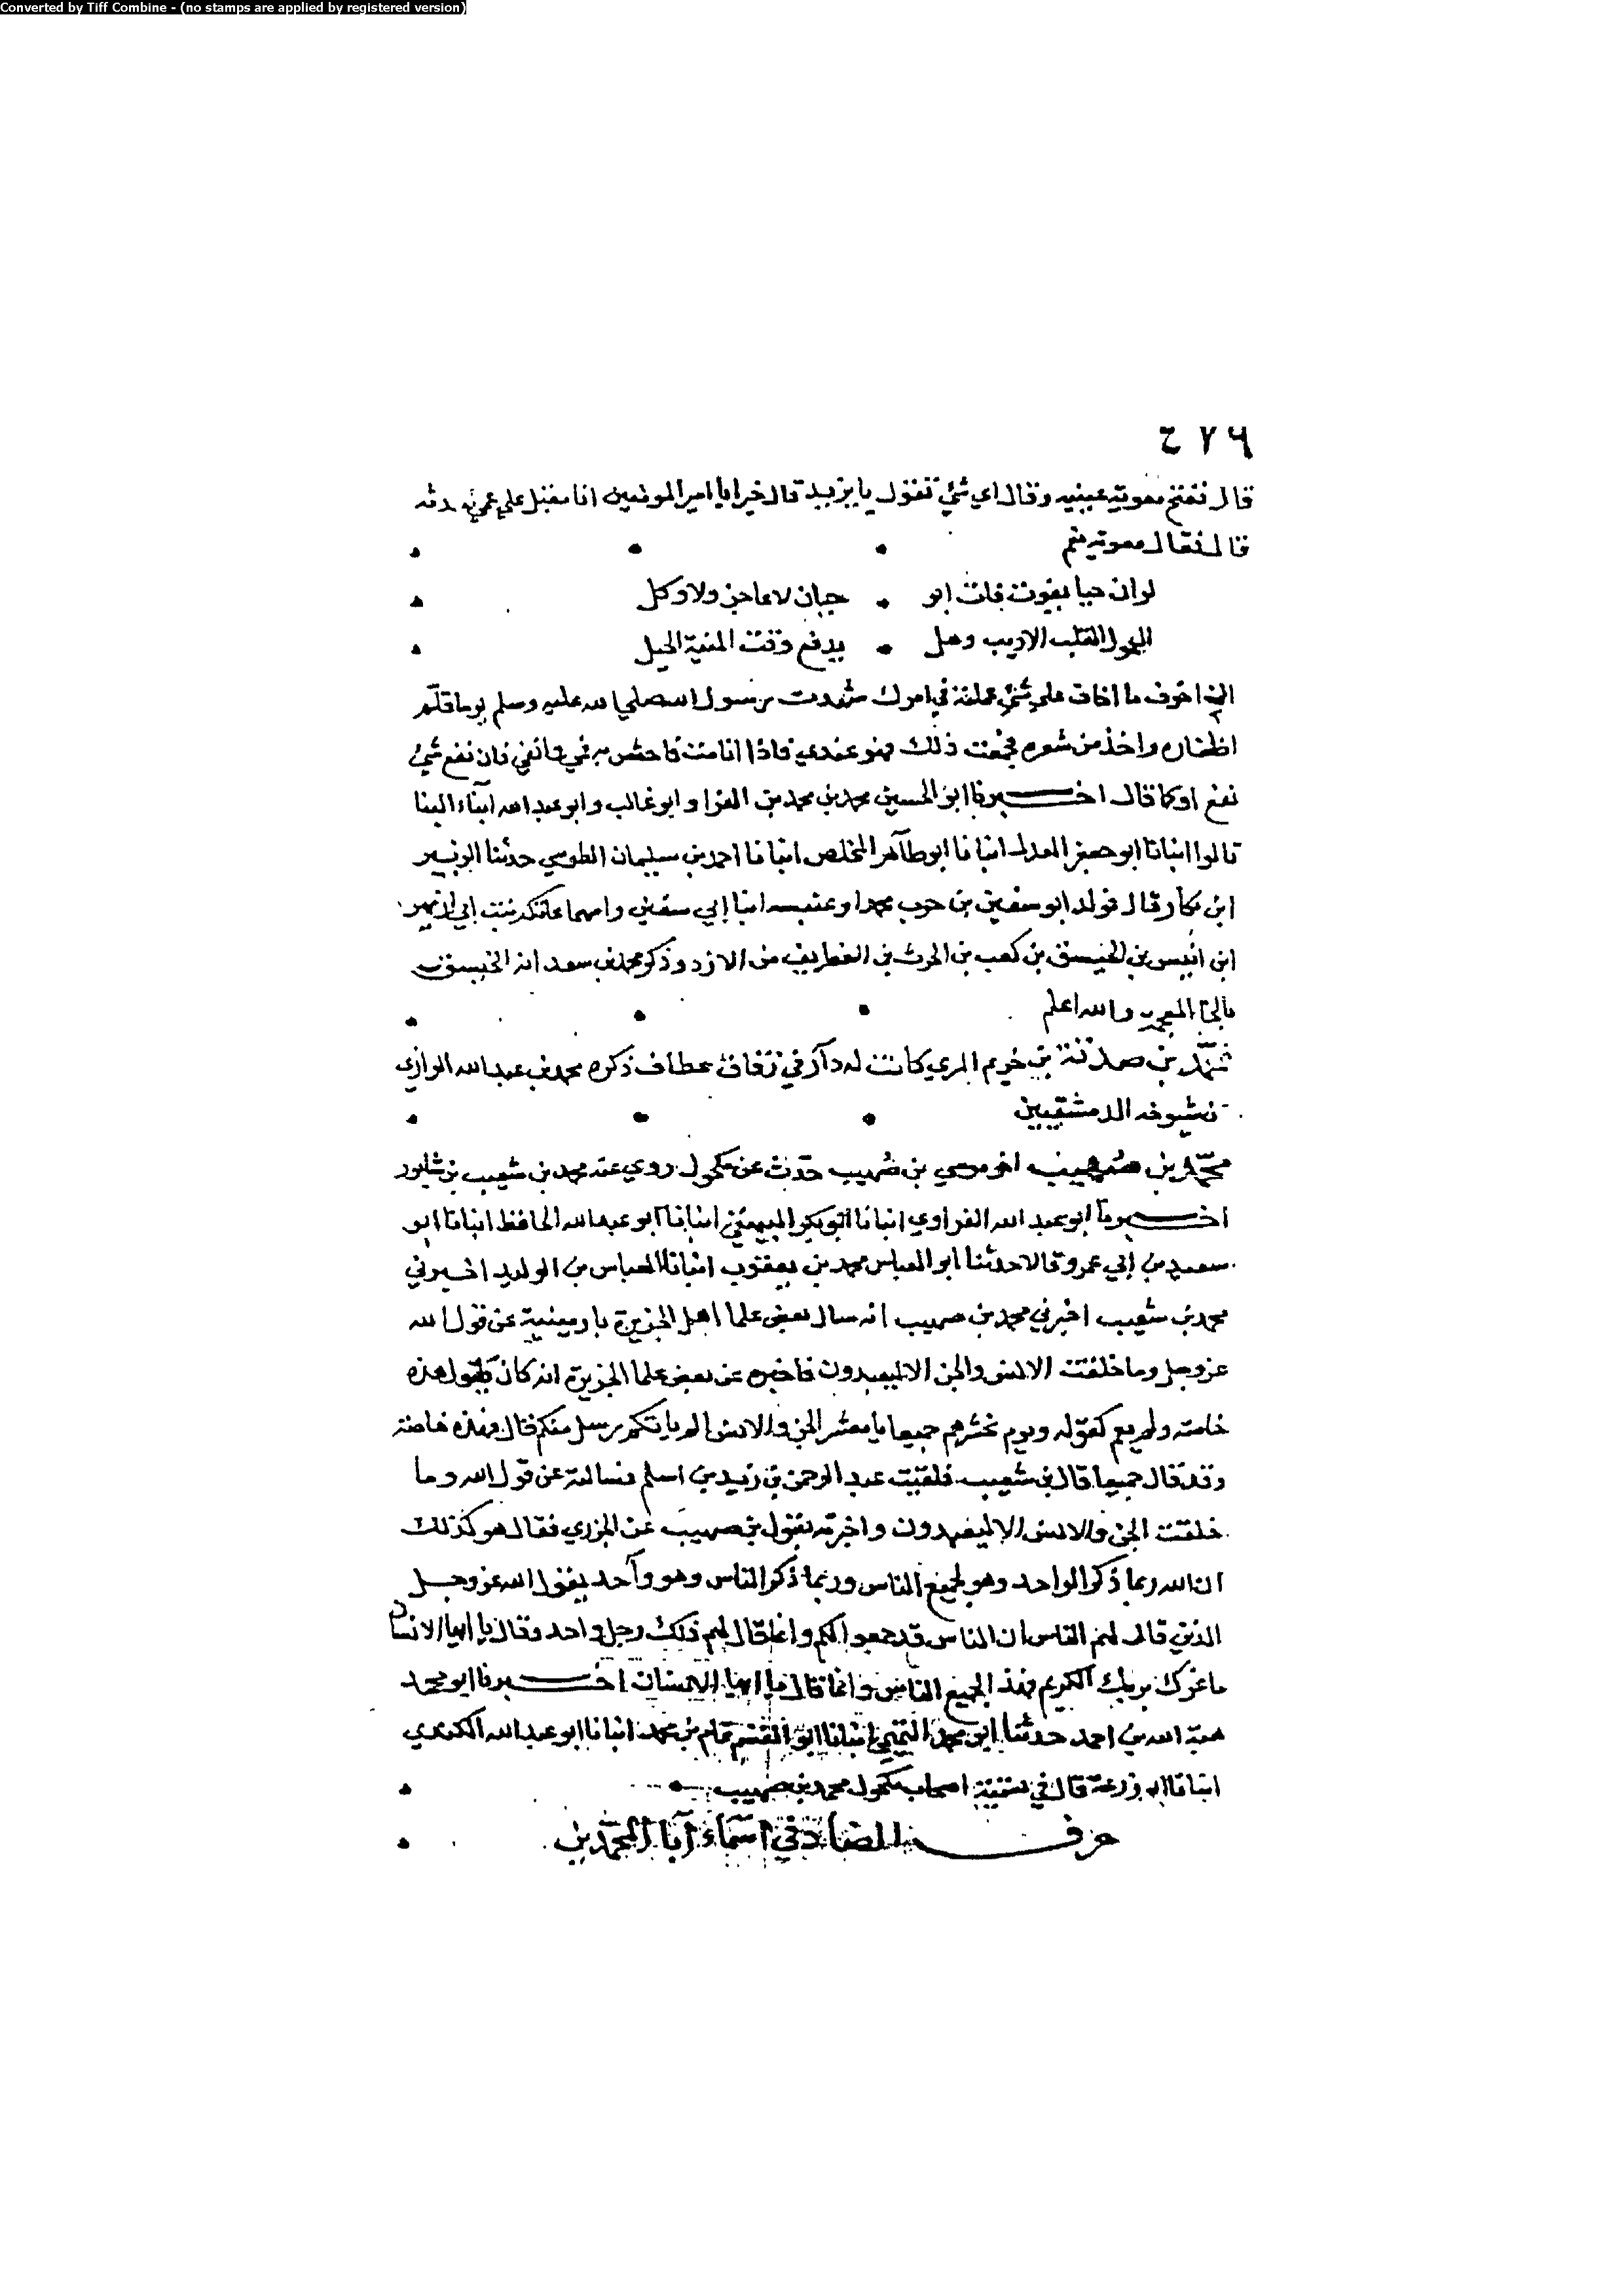 Converted by Tiff Combine - (no stamps are applied by registered version)
٢٧٦
قال ففتح معوية عينيه وقال اي شئ تقول يا يزيد قال خيرا يا امير المومنين انا مقبل علي عمي
قال فقال معوية نعم
لو ان حيا يفوت فات ابو حيان لا عاجز ولا وكل
الحول القلب الاريب وهل يدفع وقت المنية الحيل
ان اخوف ما اخاف علي شئ عملته في امرك شهدت رسول الله صلي الله عليه وسلم يوما قلم
اظفاره واخذ من شعره فجمعت ذلك فهو عندي فاذا انا مت فاحش به في وانفي فان نفع شئ
نفع او كما قال اخبرنا ابو الحسين محمد بن محمد بن الفرا وابو غالب وابو عبد الله ابناء البنا
قالوا انبانا ابو جعفر المعدل انبانا ابو طاهر المخلص انبانا احمد بن سليمان الطوسي حدثنا الزبير
ابن بكار قال فولد ابو سفين بن حرب محمدا وعنبسه ابنا ابي سفين وامهما عاتكه بنت ابي ازيهر
ابن انيس بن الخيسق بن كعب بن الحرث بن الغطريف من الازد وذكر محمد بن سعد انه الخيسق
بالخا المعجمه والله اعلم
محمد بن صدقة بن خريم المري كانت له دار في زقاق عطاف ذكره محمد بن عبد الله الرازي
شيوخه الدمشقيين
محمد بن صهيب اخو موسي بن صهيب حدث عن مكحول روي عنه محمد بن شعيب بن شابور
اخبرنا ابو عبد الله الفراوي انبانا ابو بكر البيهقي انبانا ابو عبد الله الحافظ انبانا ابو
سعيد بن ابي عمرو قالا حدثنا ابو العباس محمد بن يعقوب انبانا العباس بن الوليد اخبرني
محمد بن شعيب اخبرني محمد بن صهيب انه سال بعض علما اهل الجزيرة بارمينية عن قول الله
عز وجل وما خلقت الانس والجن الا ليعبدون فاخبره عن بعض علما الجزيرة انه كان يقول هذه
خاصة ولم يعم كقوله ويوم نحشرهم جميعا يا معشر الجن والانس الم ياتكم رسل منكم قال فهذه خاصة
وقد قال جميعا قال بن شعيب فلقيت عبد الرحمن بن زيد بن اسلم فسالته عن قول الله وما
خلقت الجن والانس الا ليعبدون واخبرته بقول بن صهيب عن الجزري فقال هو كذلك
ان الله ربما ذكر الواحد وهو لجميع الناس وربما ذكر الناس وهو واحد يقول الله عز وجل
الذين قال لهم الناس ان الناس قد جمعوا لكم وانما قال لهم ذلك رجل واحد وقال يا ايها الانسان
ما غرك بربك الكريم فهذا لجميع الناس وانما قال يا ايها الانسان اخبرنا ابو محمد
هبة الله بن احمد حدثنا ابو محمد التميمي انبانا ابو القسم تمام بن محمد انبانا ابو عبد الله الكندي
انبانا ابو زرعة قال في تسمية اصحاب مكحول محمد بن صهيب
حرف الضاد في اسماء آبا المحمدين